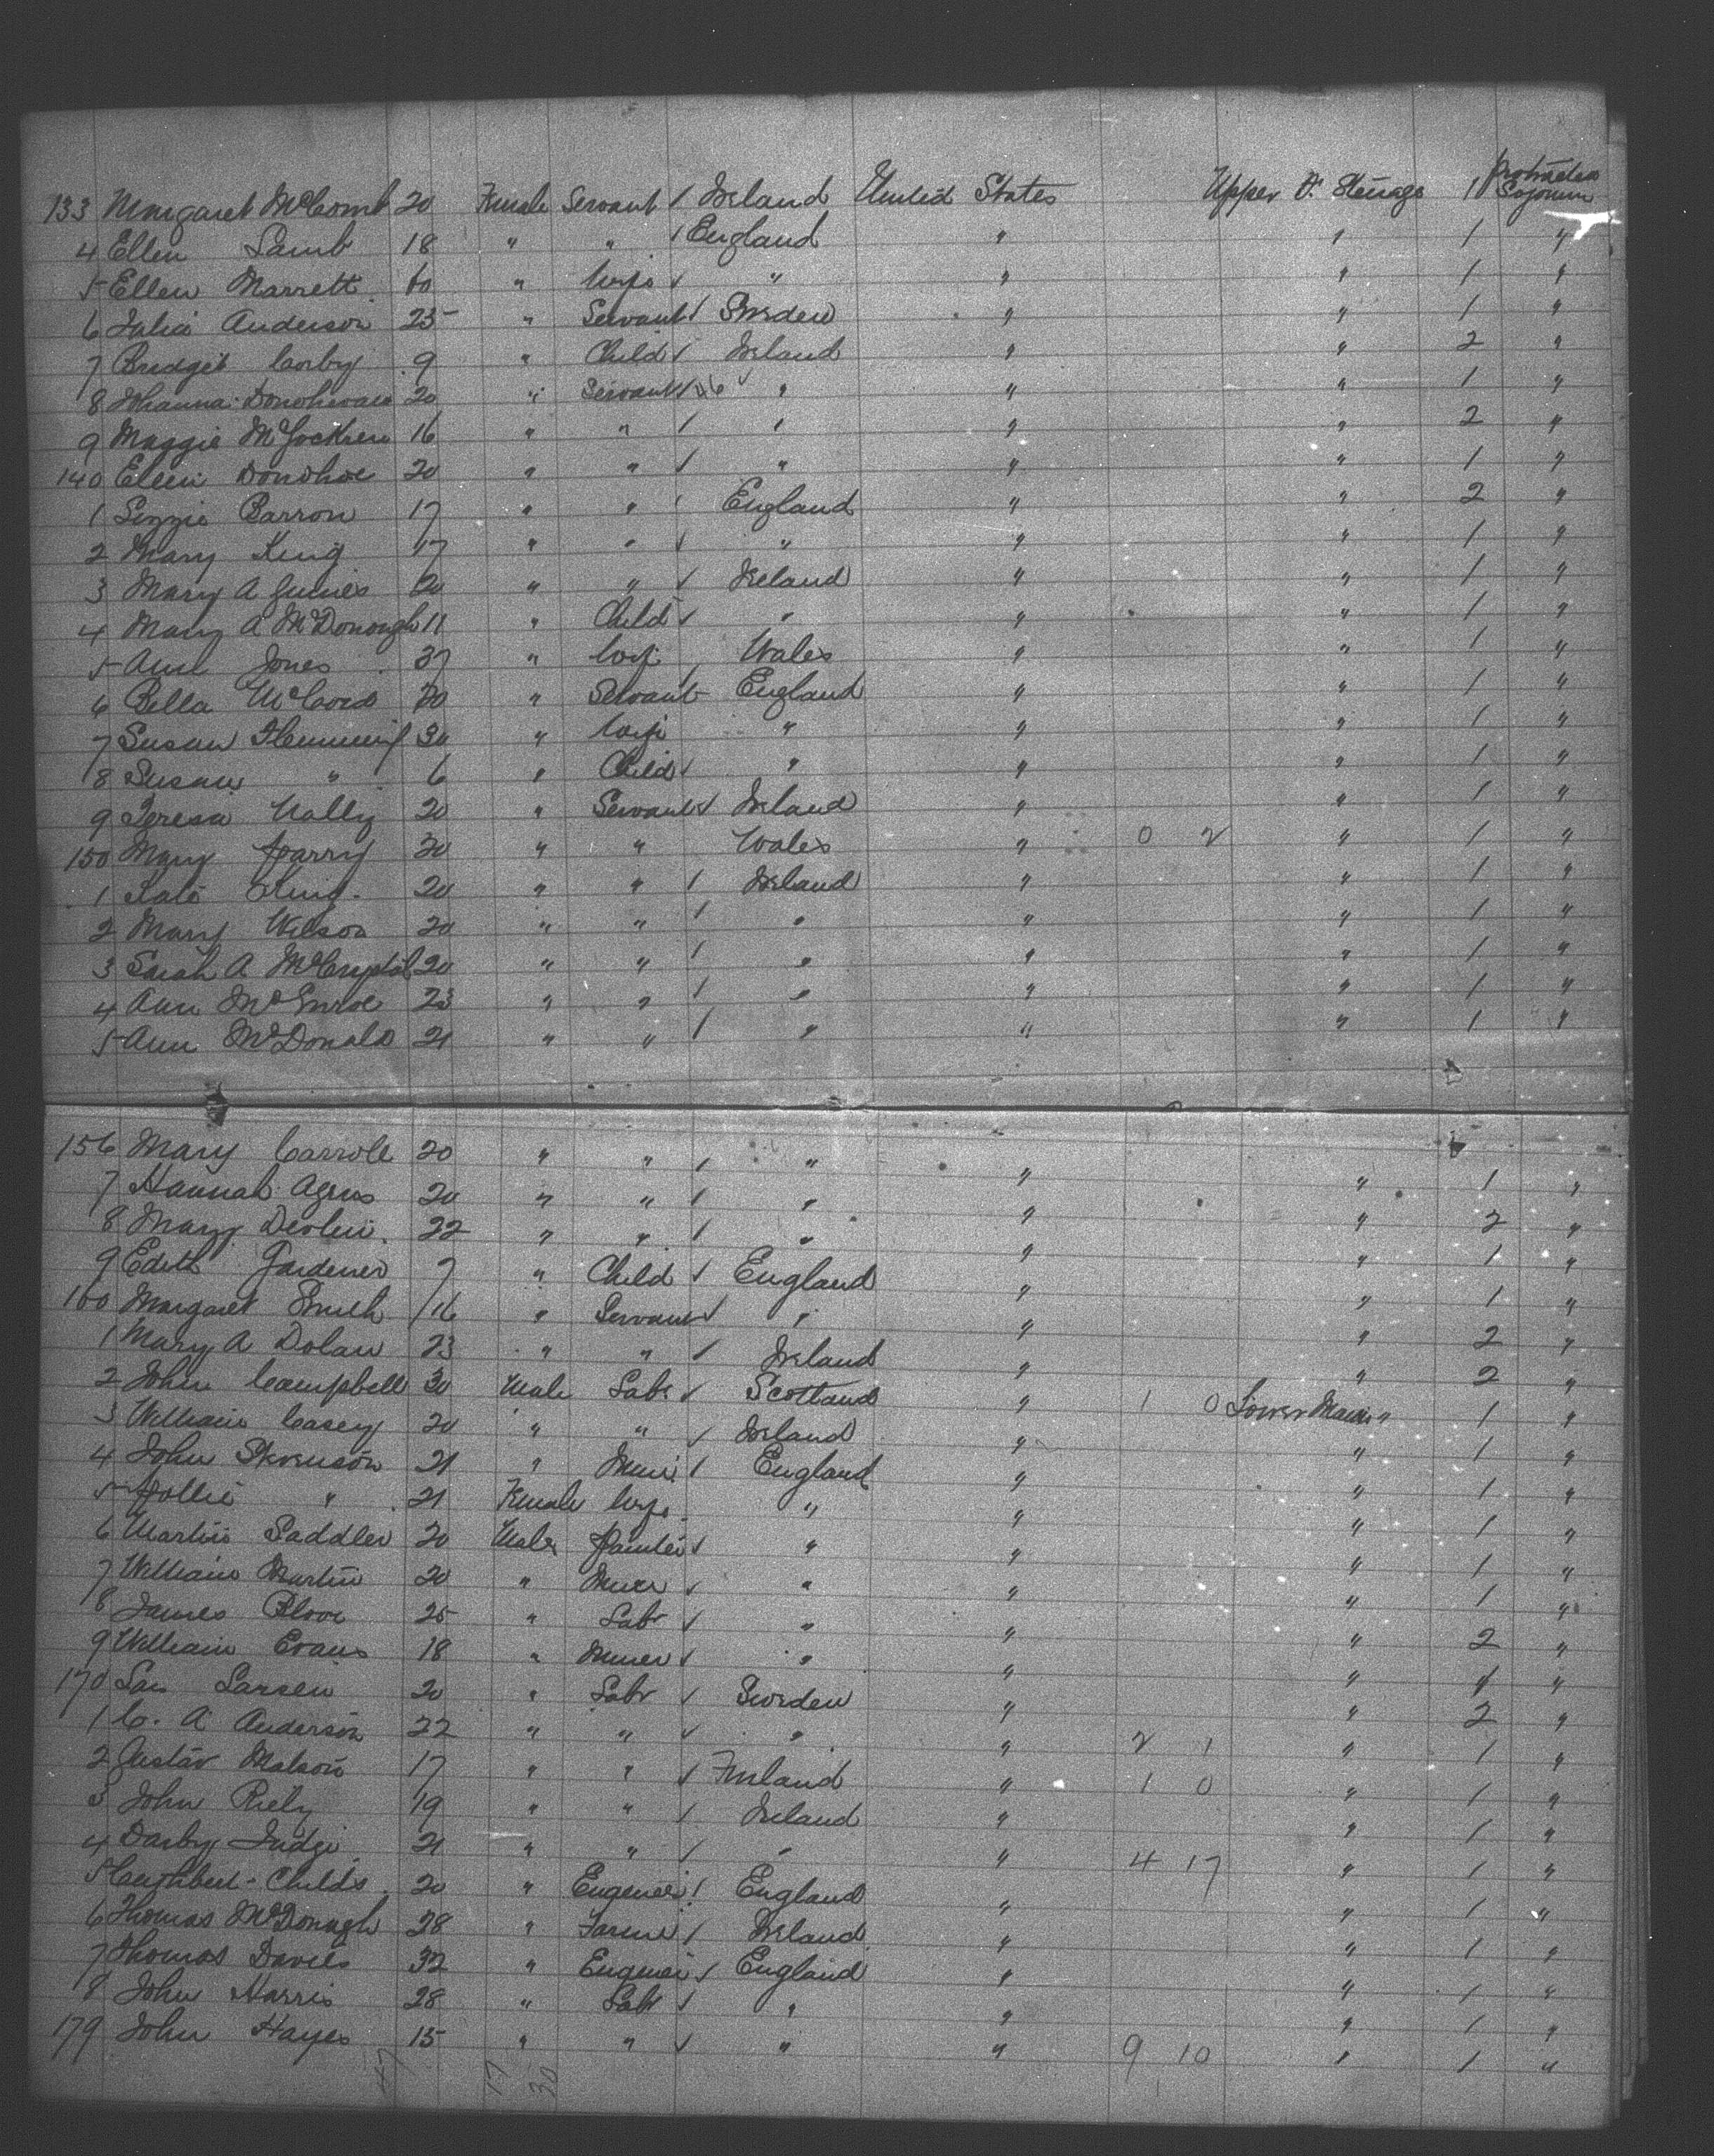 133 Margaret McComb 20 Female Servant / Ireland United States Upper D. Steirage 1 Protracted Sojourn
4 Ellen Lamb 18 " " / England " " 1 "
5 Ellen Marrett 60 " Wife ✓ " " " 1 "
6 Julia Anderson 25 " Servant / Sweden " " 1 "
7 Bridget Corby 9 " Child ✓ Ireland " " 2 "
8 Johanna Donohivan 20 " Servant ✓ " " " 1 "
9 Maggie 16 " " / " " " 2 "
140 Ellen Donohoe 20 " " ✓ " " " 1 "
1 Lizzie Barron 17 " " / England " " 2 "
2 Mary King 17 " " ✓ " " " 1 "
3 Mary A 20 " " ✓ Ireland " " 1 "
4 Mary A McDonough 11 " Child ✓ " " " 1 "
5 Ann Jones 37 " Wife / Wales " " 1 "
6 Bella 20 " Servant England " " 1 "
7 Susan Flemming 30 " Wife " " " 1 "
8 Susan " 6 " Child ✓ " " " 1 "
9 Teresa Nally 20 " Servant ✓ Ireland " " 1 "
150 Mary Parry 20 " " Wales " 0 2 " 1 "
1 Kate King 20 " " / Ireland " " 1 "
2 Mary Wilson 20 " " / " " " 1 "
3 Sarah A McCrystal 20 " " / " " " 1 "
4 Ann McEnroe 23 " " / " " " 1 "
5 Ann McDonald 21 " " / " " " 1 "
156 Mary Carroll 20 " " / " " " 1 "
7 Hannah Agnes 20 " " / " " " 2 "
8 Mary Devlin 22 " " / " " " 1 "
9 Edith Gardener 7 " Child ✓ England " " 1 "
160 Margaret Smith 16 " Servant ✓ " " " 2 "
1 Mary A Dolan 23 " " / Ireland " " 2 "
2 John Campbell 30 Male Labr ✓ Scotland " 1 0 Lower Main " 1 "
3 William Casey 20 " " / Ireland " " 1 "
4 John Stevenson 21 " Miner / England " " 1 "
5 Pollie " 21 Female Wife " " " 1 "
6 Martin Saddler 20 Male Painter ✓ " " " 1 "
7 William Martin 20 " Miner ✓ " " " 1 "
8 James 25 " Labr ✓ " " " 2 "
9 William Evans 18 " Miner ✓ " " " 1 "
170 Lars Larsen 20 " Labr ✓ Sweden " " 2 "
1 C. A Anderson 22 " " ✓ " " 2 1 " 1 "
2 Gustav Matson 17 " " ✓ Finland " 1 0 " 1 "
3 John Riely 19 " " / Ireland " " 1 "
4 Darby Judge 21 " " / " " 4 17 " 1 "
5 Cuthbert Childs 20 " Engeneer / England " " 1 "
6 Thomas McDonagh 28 " Farmer / Ireland " " 1 "
7 Thomas Davies 32 " Engeneer ✓ England " " 1 "
8 John Harris 28 " Labr ✓ " " " 1 "
179 John Hayes 15 " " ✓ " " 9 10 " 1 "
47 17 30